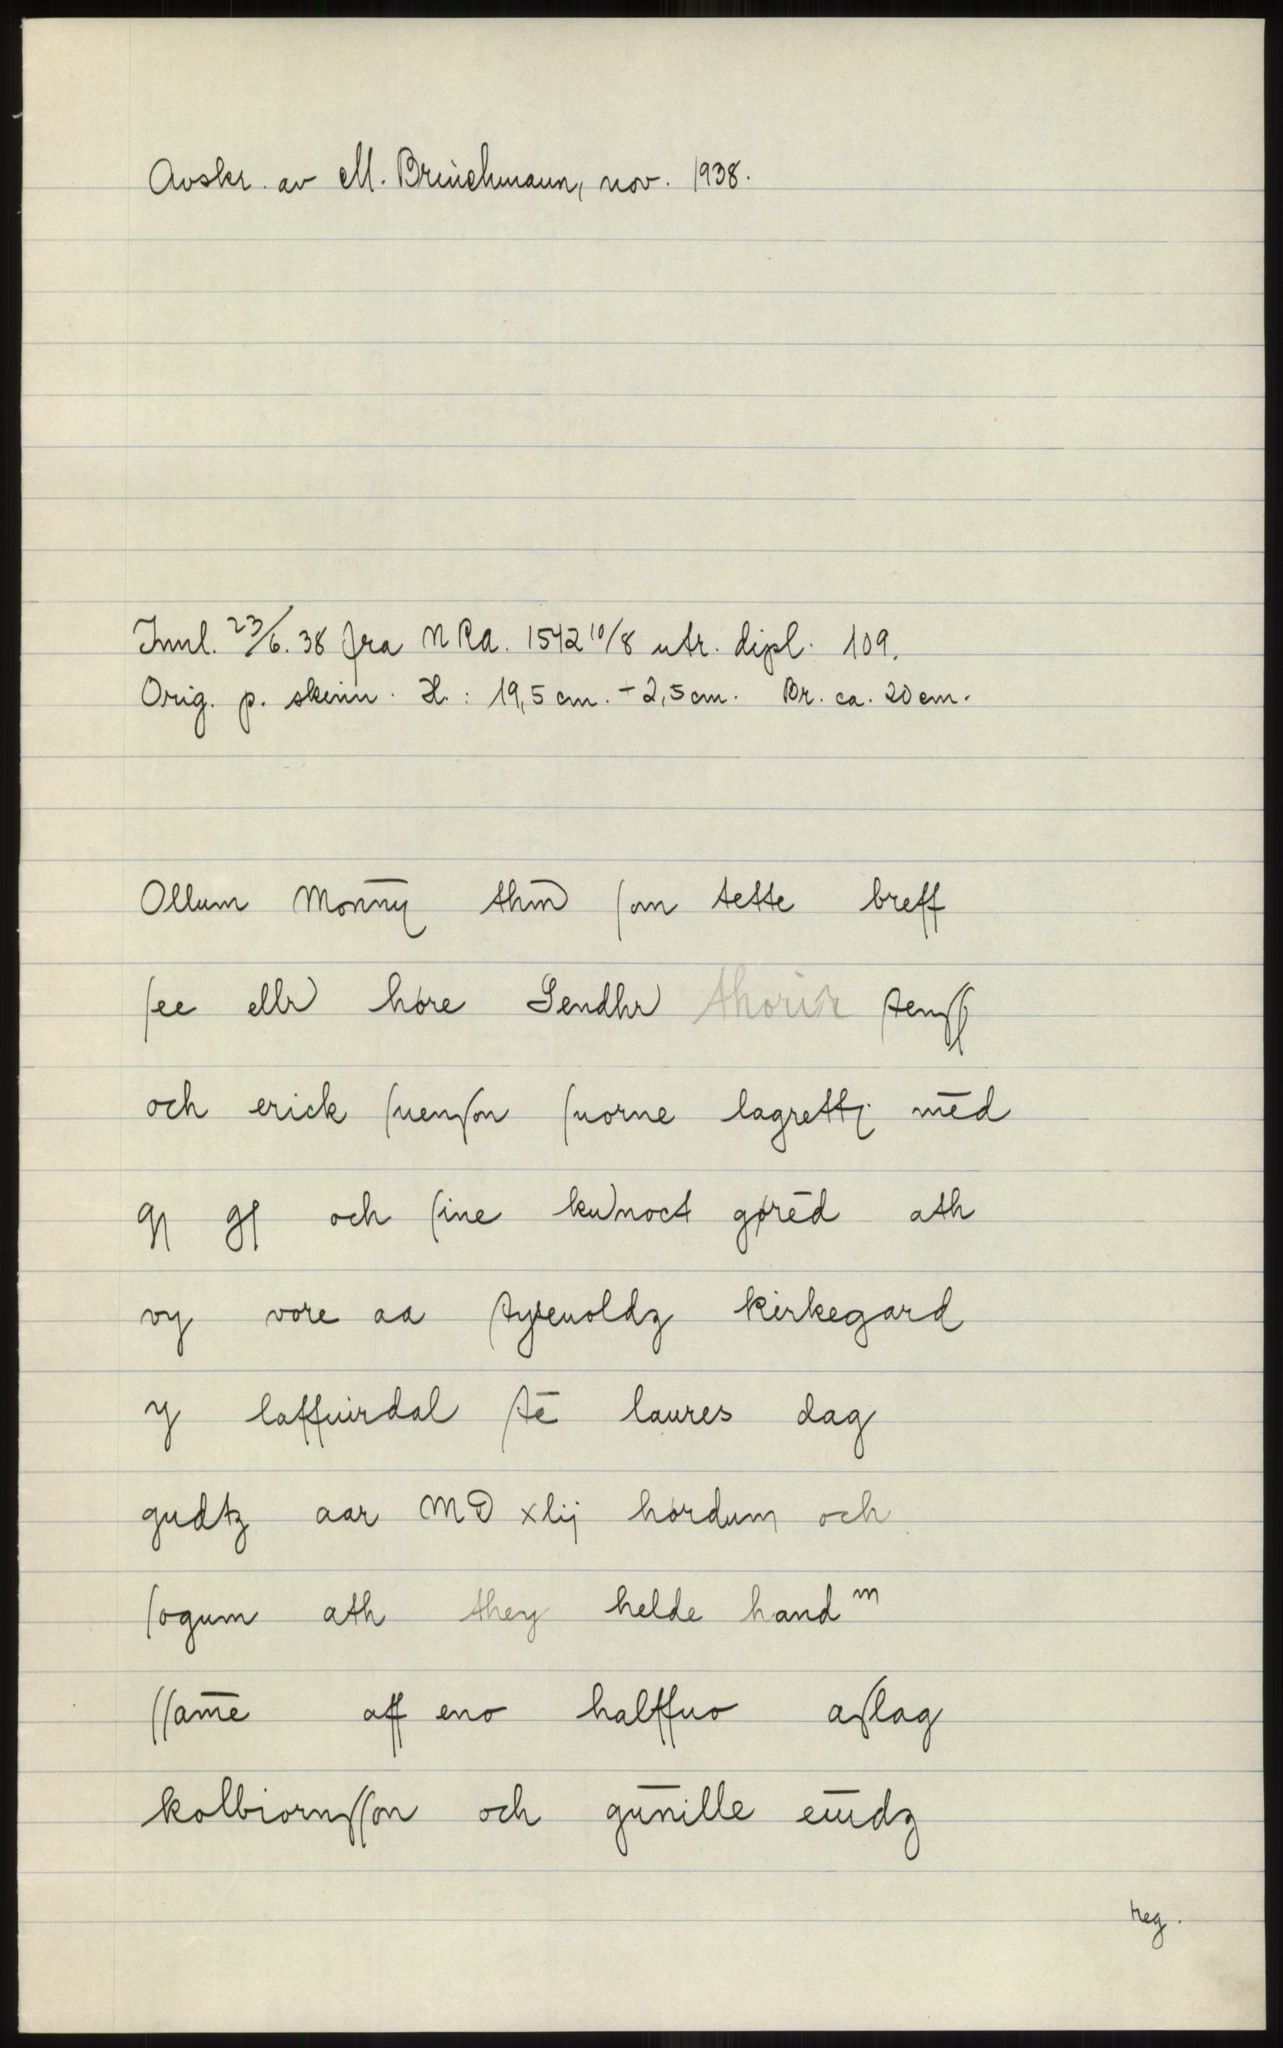 Avskr. av M. Brinchmann, nov. 1938.
Innl. 23/6. 38 fra NRA. 1542 10/8 utr. dipl. 109.
Orig. p. skinn. H.: 19,5 cm. + 2,5 cm. Br. ca. 20 cm.
Ollum Monnų̄ thm̄ ſom tette breff
ſee ellr høre Sendhr thorir ſtenſſ
och erick ſuenſon ſuorne lagrettį mēd
qȷ gȷ och ſine kunoct gørēd ath
vy vore aa ſtyrenoldz kirkegard
y laffuirdal ſtē laures dag
gudtz aar MD xlij hørdum och
ſogum ath they helde hand m
ſſam̄e aff eno halffuo aſlag
kolbiornſſon och gūnille eūidz
reg.